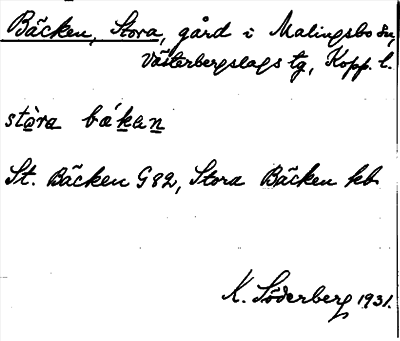 Bäcken, Stora, gård i Malingsbo sn,
Västerbergslags tg, Kopp. l.
stὰra bákan
St. Bäcken G82, Stora Bäcken kb
K. Söderberg 1931.